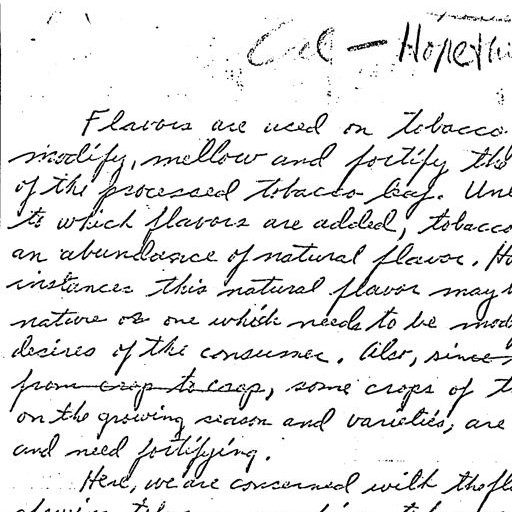 Cal - Hope thi
Flavors are used on tobacco
modify, mellow and fortify the
of the processed tobacco leaf. Unl
to which flavors are added, tobacco
an abundance of natural flavor. Ho
instances this natural flavor may b
nature or one which needs to be mod
desires of the consumer. Also, since
from crop to crop, some crops of t
on the growing season and varieties, are
and need fortifying.
Here, we are concerned with the fl